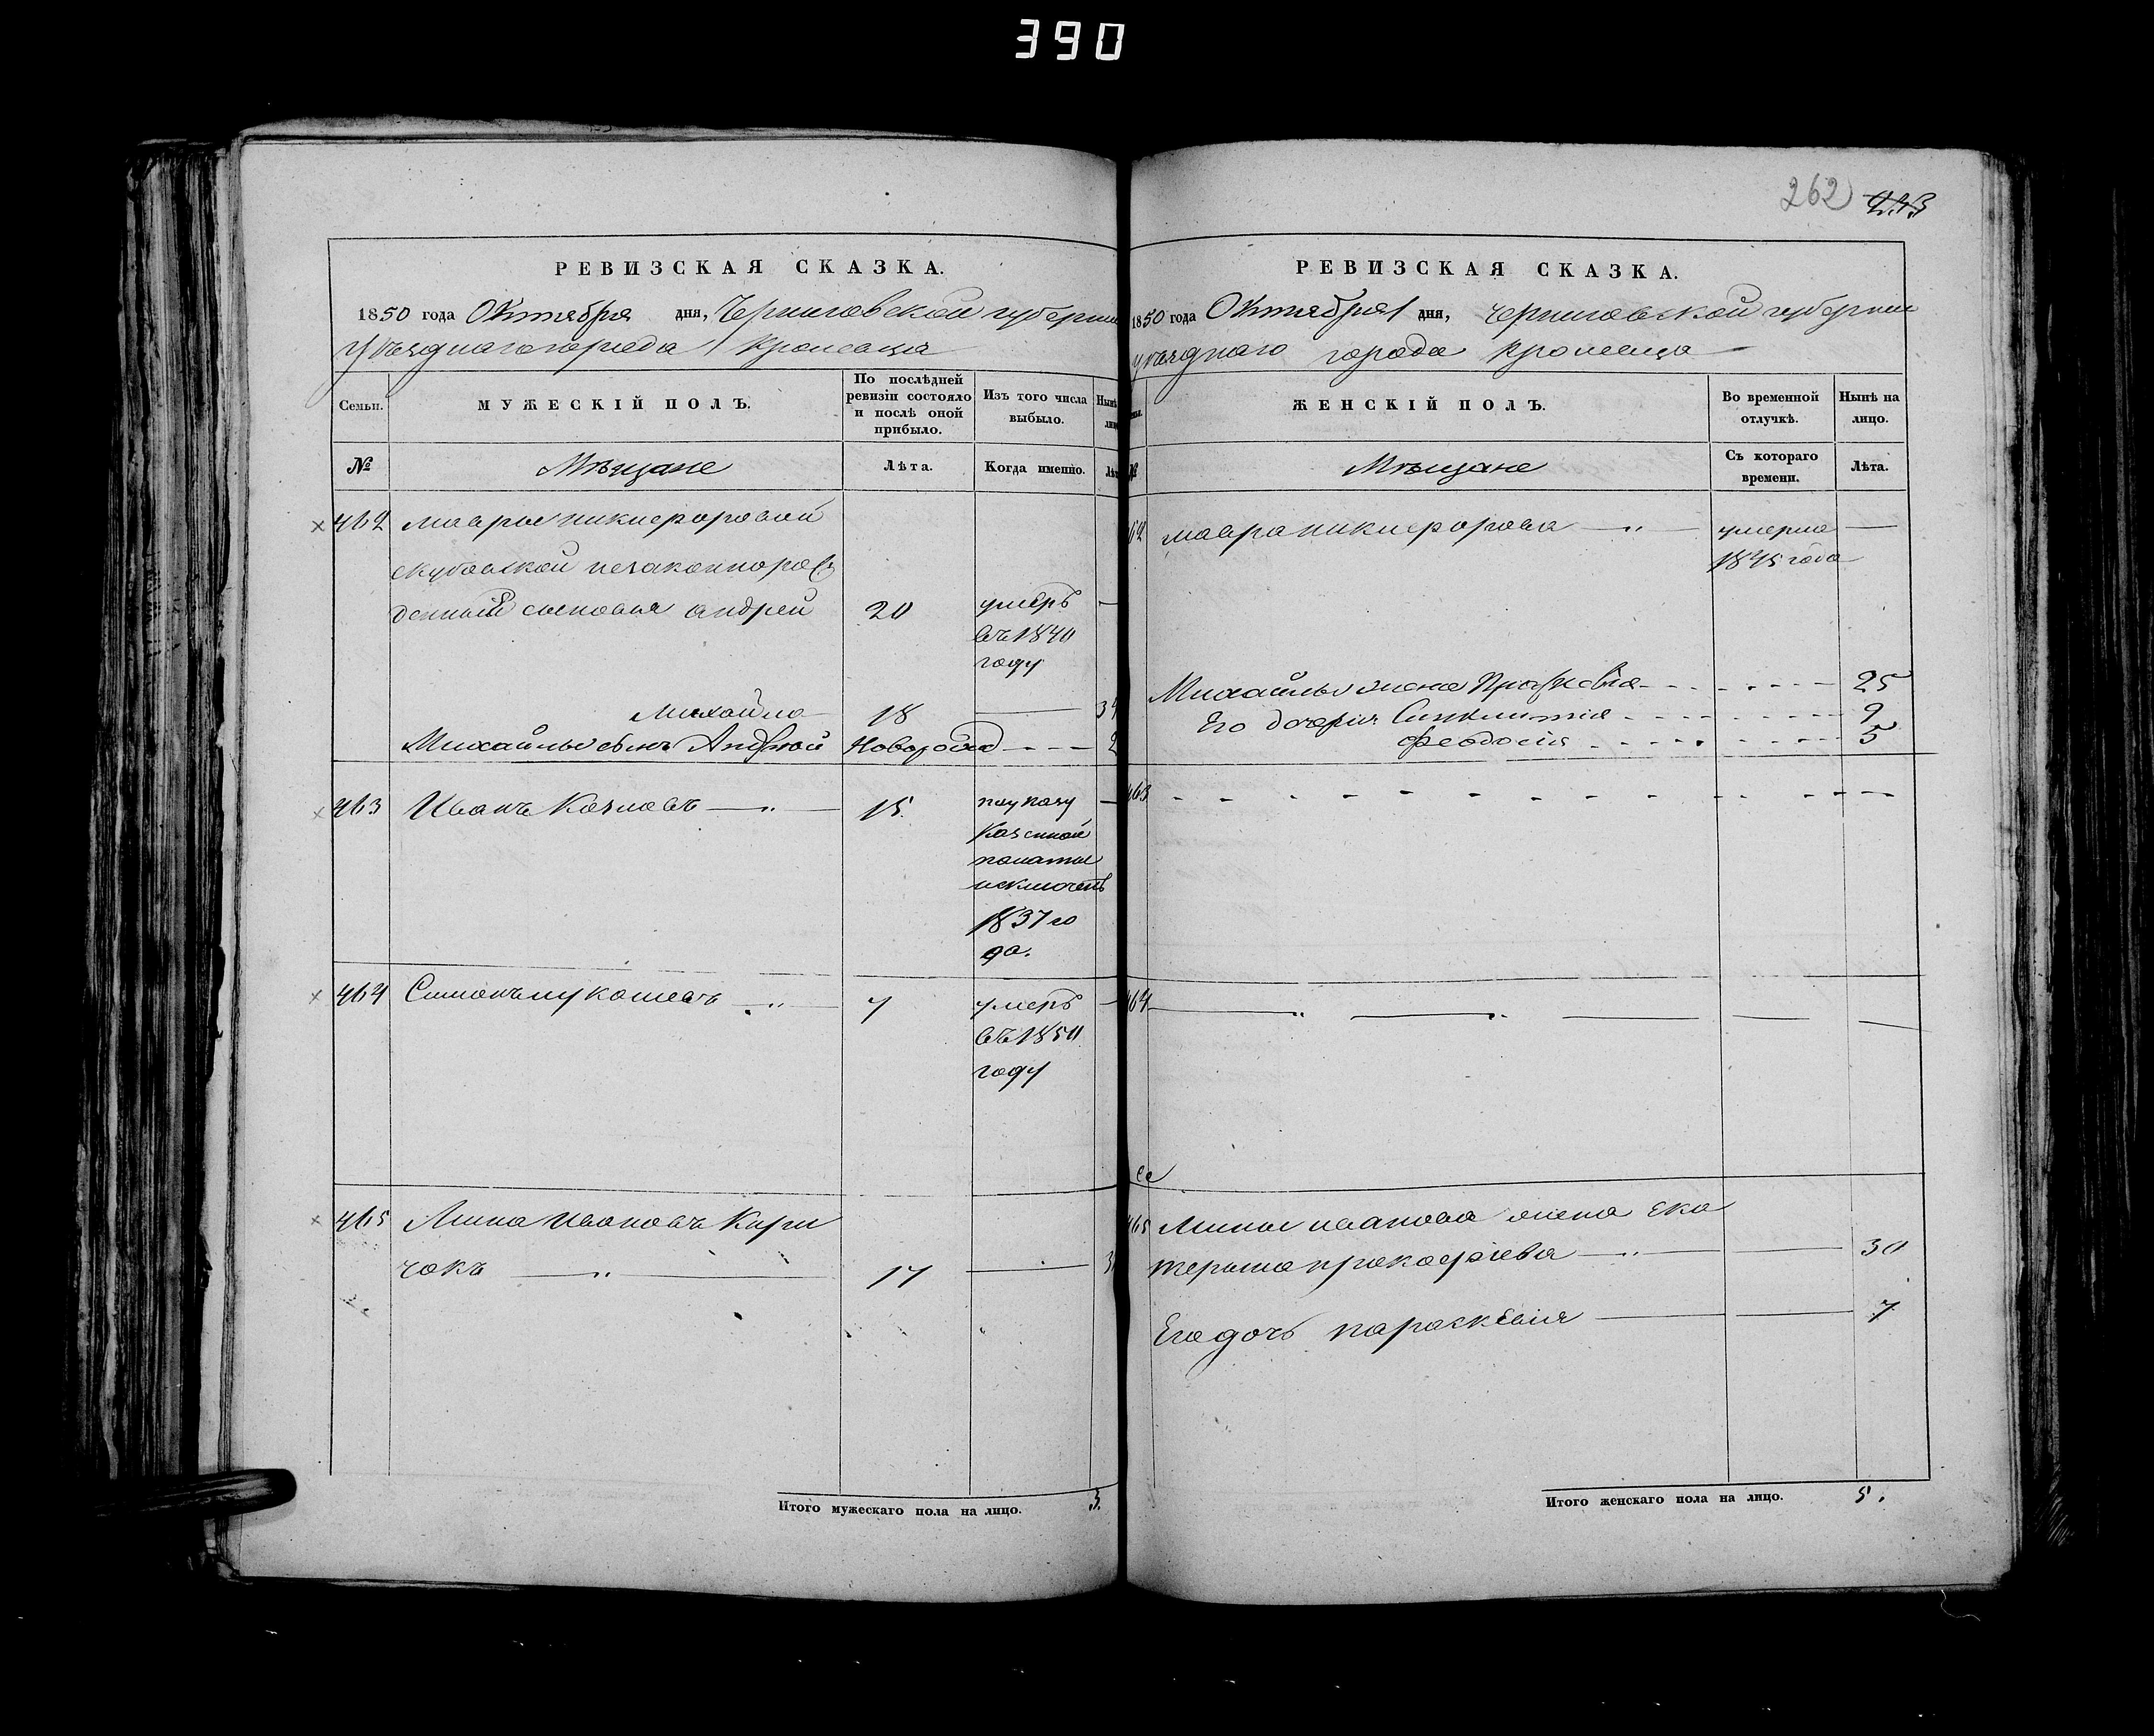 390
262 243
РЕВИЗСКАЯ СКАЗКА.
1850 года Октября дня, Черниговской губернии
уѣзднаго города Кролевца
Семьи. МУЖЕСКІЙ ПОЛЪ. По послѣдней ревизіи состояло и послѣ оной прибыло. Изъ того числа выбыло. Нынѣ
№ Мѣщане Лѣта. Когда именно.
462 Мавры никифоровой
незаконнорож
денныи сыновья андрей 20 умеръ
въ 1840
году
Михайло 18
Михайлы сынъ Андрей Новорожд 2
463 Иванъ Козловъ 15 по указу
Казенной
палаты
исключенъ
1837 го
да.
464 Симонъ Лукашевъ 7 умеръ
въ 1850
году
465 Мина Ивановъ Кири
чокъ 17
Итого мужескаго пола на лицо. 3.
РЕВИЗСКАЯ СКАЗКА.
1850 года Октября дня, черниговской губернии
уѣзднаго города кролевца
ЖЕНСКІЙ ПОЛЪ. Во временной отлучкѣ. Нынѣ на лицо.
№ Мѣщане Съ котораго времени. Лѣта.
62 мавра никифорова умерла
1845 года
Михайлы жена Прасковья 25
Его дочери Синклитія 9
Феодосія 5
463
464
465 Мины иванова жена Ека
терина прокофіева 30
Его дочь параскевія 7
Итого женскаго пола на лицо. 5.